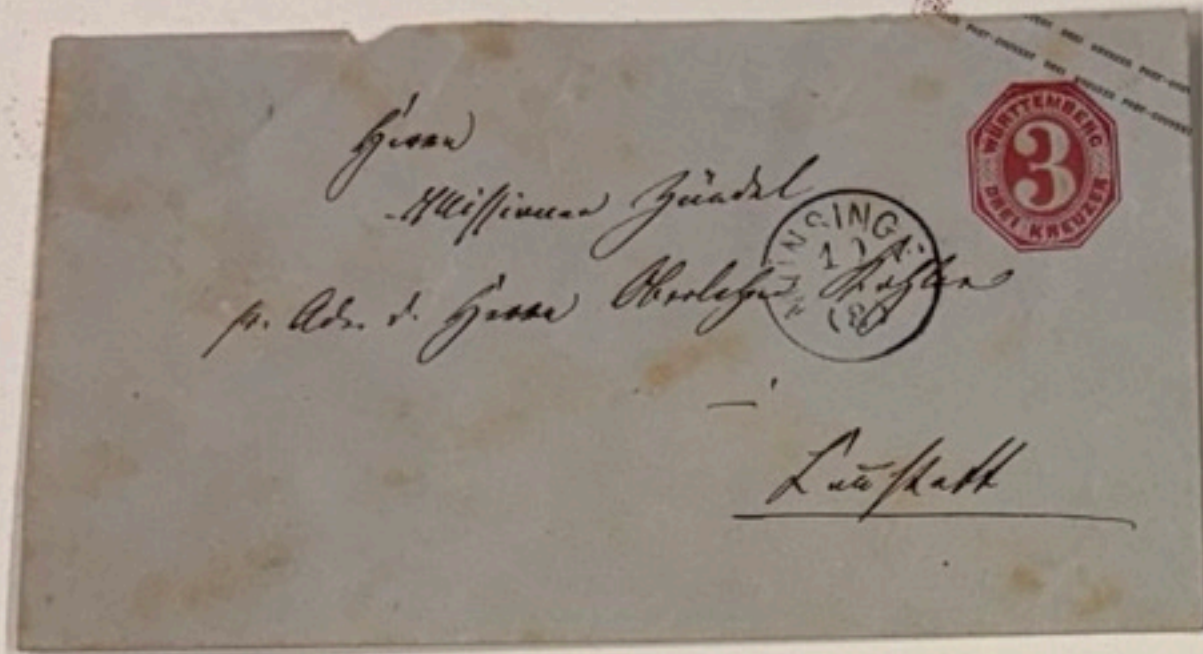 Herrn
Missionar Zündel
p. Adr. d. Herrn Oberlehrer Kohler
Cannstatt
WÜRTTEMBERG
3
DREI KREUZER